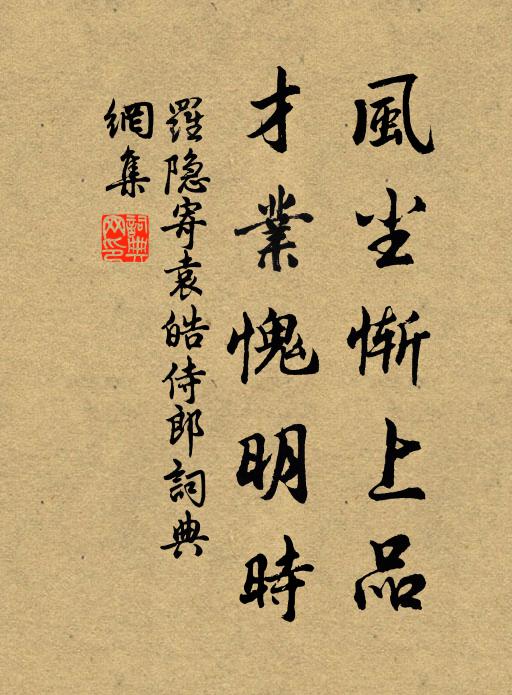 風尘惭上品
才業愧明時
羅隐寄袁皓侍郎詞典
網集
詞典网印